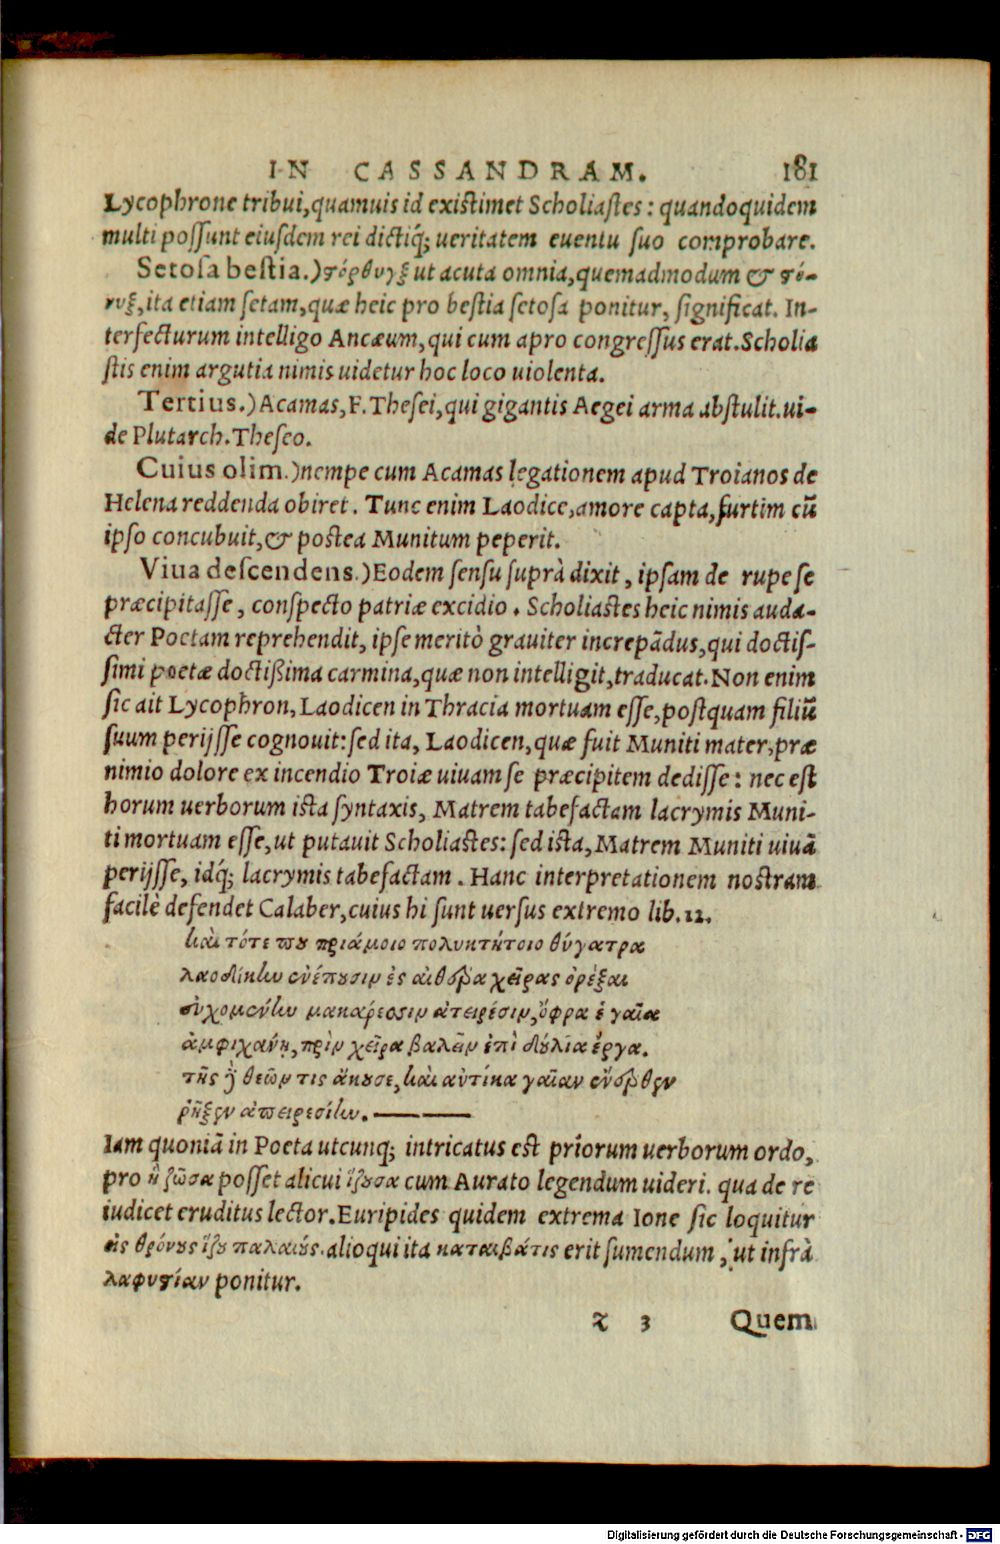 IN CASSANDRAM. 181
Lycophrone tribui, quamuis id existimet Scholiastes: quandoquidem
multi possunt eiusdem rei dictiq́; ueritatem euentu suo comprobare.
Setosa bestia.) στόρθυγξ ut acuta omnia, quemadmodum & στό-
νυξ, ita etiam setam, quæ heic pro bestia setosa ponitur, significat. In-
terfecturum intelligo Ancæum, qui cum apro congressus erat. Scholia
stis enim argutia nimis uidetur hoc loco uiolenta.
Tertius.) Acamas, F. Thesei, qui gigantis Aegei arma abstulit. ui-
de Plutarch. Theseo.
Cuius olim.) nempe cum Acamas legationem apud Troianos de
Helena reddenda obiret. Tunc enim Laodice, amore capta, furtim cū
ipso concubuit, & postea Munitum peperit.
Viua descendens.) Eodem sensu suprà dixit, ipsam de rupe se
præcipitasse, conspecto patriæ excidio. Scholiastes heic nimis auda-
cter Poetam reprehendit, ipse meritò grauiter increpādus, qui doctis-
simi poetæ doctißima carmina, quæ non intelligit, traducat. Non enim
sic ait Lycophron, Laodicen in Thracia mortuam esse, postquam filiū
suum perijsse cognouit: sed ita, Laodicen, quæ fuit Muniti mater, præ
nimio dolore ex incendio Troiæ uiuam se præcipitem dedisse: nec est
horum uerborum ista syntaxis, Matrem tabefactam lacrymis Muni-
ti mortuam esse, ut putauit Scholiastes: sed ista, Matrem Muniti uiuā
perijsse, idq́; lacrymis tabefactam. Hanc interpretationem nostram
facilè defendet Calaber, cuius hi sunt uersus extremo lib. 12.
καὶ τότε που πριάμοιο πολυκτήτοιο θύγατρα
λαοδίκην ἐνέπουσιν ἐς αἰθέρα χεῖρας ὀρέξαι
εὐχομένην μακάρεσσιν ἀτειρέσιν, ὄφρα ἑ γαῖα
ἀμφιχάνῃ, πρὶν χεῖρα βαλεῖν ἐπὶ δούλια ἔργα.
τῆς δὲ θεῶν τις ἄκουσε, καὶ αὐτίκα γαῖαν ἔνερθεν
ῥῆξεν ἀπειρεσίην. — —
Iam quoniā in Poeta utcunq; intricatus est priorum uerborum ordo,
pro ἡ ζῶσα posset alicui ἵζουσα cum Aurato legendum uideri. qua de re
iudicet eruditus lector. Euripides quidem extrema Ione sic loquitur
εἰς θρόνους ἵζου παλαιούς. alioqui ita καταιβάτις erit sumendum, ut infrà
λαφυστίαν ponitur.
z 3 Quem
Digitalisierung gefördert durch die Deutsche Forschungsgemeinschaft - DFG